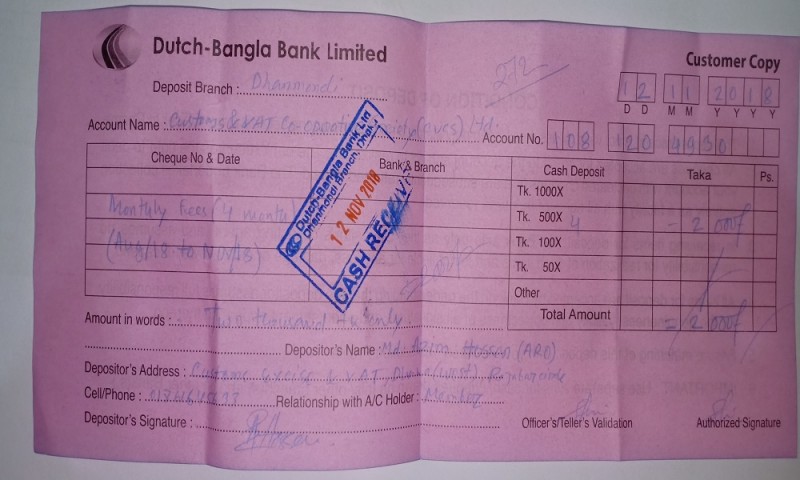 Dutch-Bangla Bank Limited
Customer Copy
2/2
Deposit Branch : Dhanmondi
12 11 2018
D D M M Y Y Y Y
Account Name : Customs & VAT Co-operative Society (cvcs) Ltd.
Account No. 108 120 4930
Cheque No & Date
Bank & Branch
Cash Deposit
Taka
Ps.
Tk. 1000X
Monthly Fees (4 months)
Tk. 500X 4
= 2000/-
(Aug/18 to Nov/18)
Tk. 100X
Tk. 50X
Other
Total Amount
= 2000/-
Dutch-Bangla Bank Ltd
Dhanmondi Branch, Dhaka
12 NOV 2018
CASH RECEIV
Amount in words : Two thousand tk only
Depositor's Name : Md. Azim Hossen (ARO)
Depositor's Address : Customs Excise & VAT, Dhaka (west),
Cell/Phone :
Relationship with A/C Holder : Member
Depositor's Signature :
Officer's/Teller's Validation
Authorized Signature